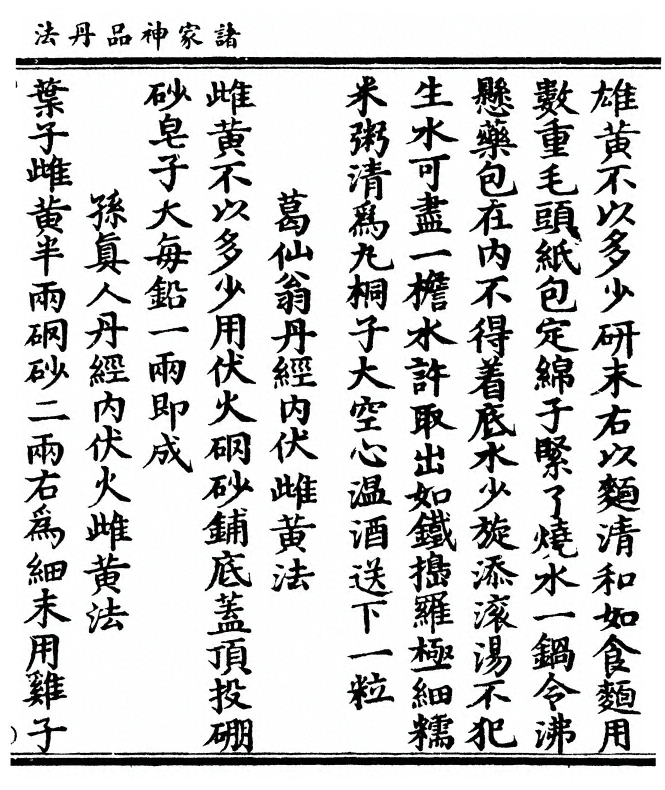 諸家神品丹法
雄黃不以多少研末右以麵清和如食麵用
數重毛頭紙包定綿子緊了燒水一鍋令沸
懸藥包在内不得着底水少旋添滚湯不犯
生水可盡一檐水許取出如鐵搗羅極細糯
米粥清爲九桐子大空心温酒送下一粒
葛仙翁丹經内伏雌黃法
雌黃不以多少用伏火硇砂鋪底蓋頂投硼
砂皂子大每鉛一兩即成
孫眞人丹經内伏火雌黃法
葉子雌黃半兩硇砂二兩右爲細末用雞子